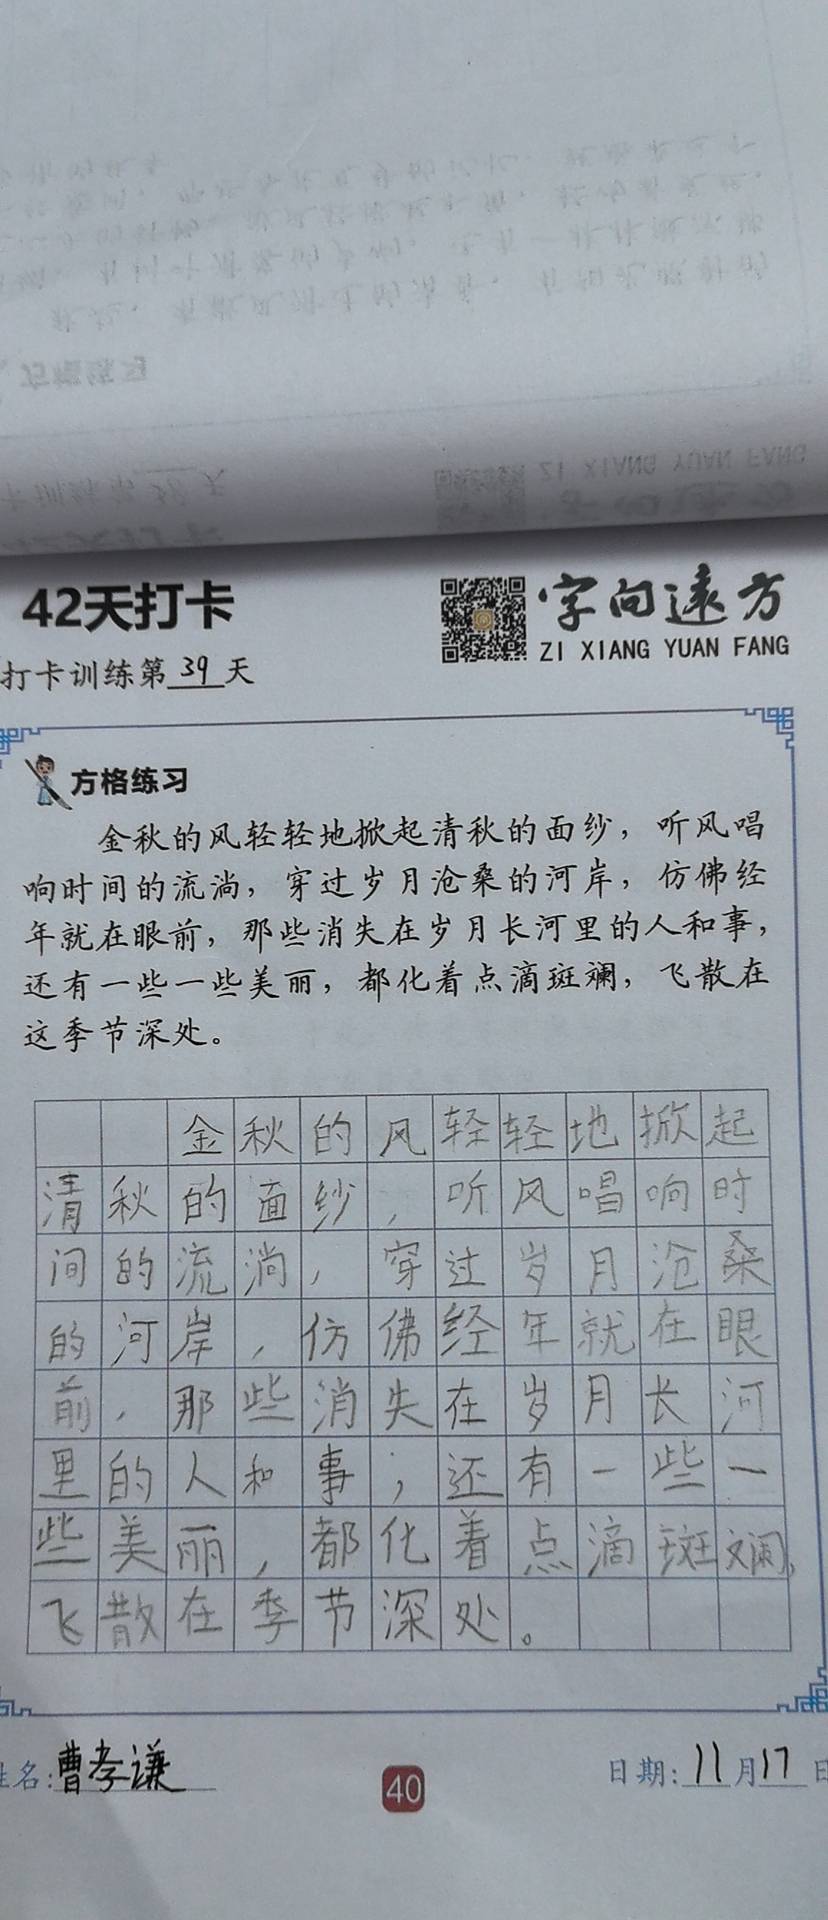 方格练习
ZI XIANG YUAN FANG
42天打卡
字向远方
ZI XIANG YUAN FANG
打卡训练第39天
方格练习
金秋的风轻轻地掀起清秋的面纱，听风唱
响时间的流淌，穿过岁月沧桑的河岸，仿佛经
年就在眼前，那些消失在岁月长河里的人和事，
还有一些一些美丽，都化着点滴斑斓，飞散在
这季节深处。
金秋的风轻轻地掀起
清秋的面纱，听风唱响时
间的流淌，穿过岁月沧桑
的河岸，仿佛经年就在眼
前，那些消失在岁月长河
里的人和事，还有一些一
些美丽，都化着点滴斑斓，
飞散在季节深处。
姓名：曹孝谦
40
日期：11月17日